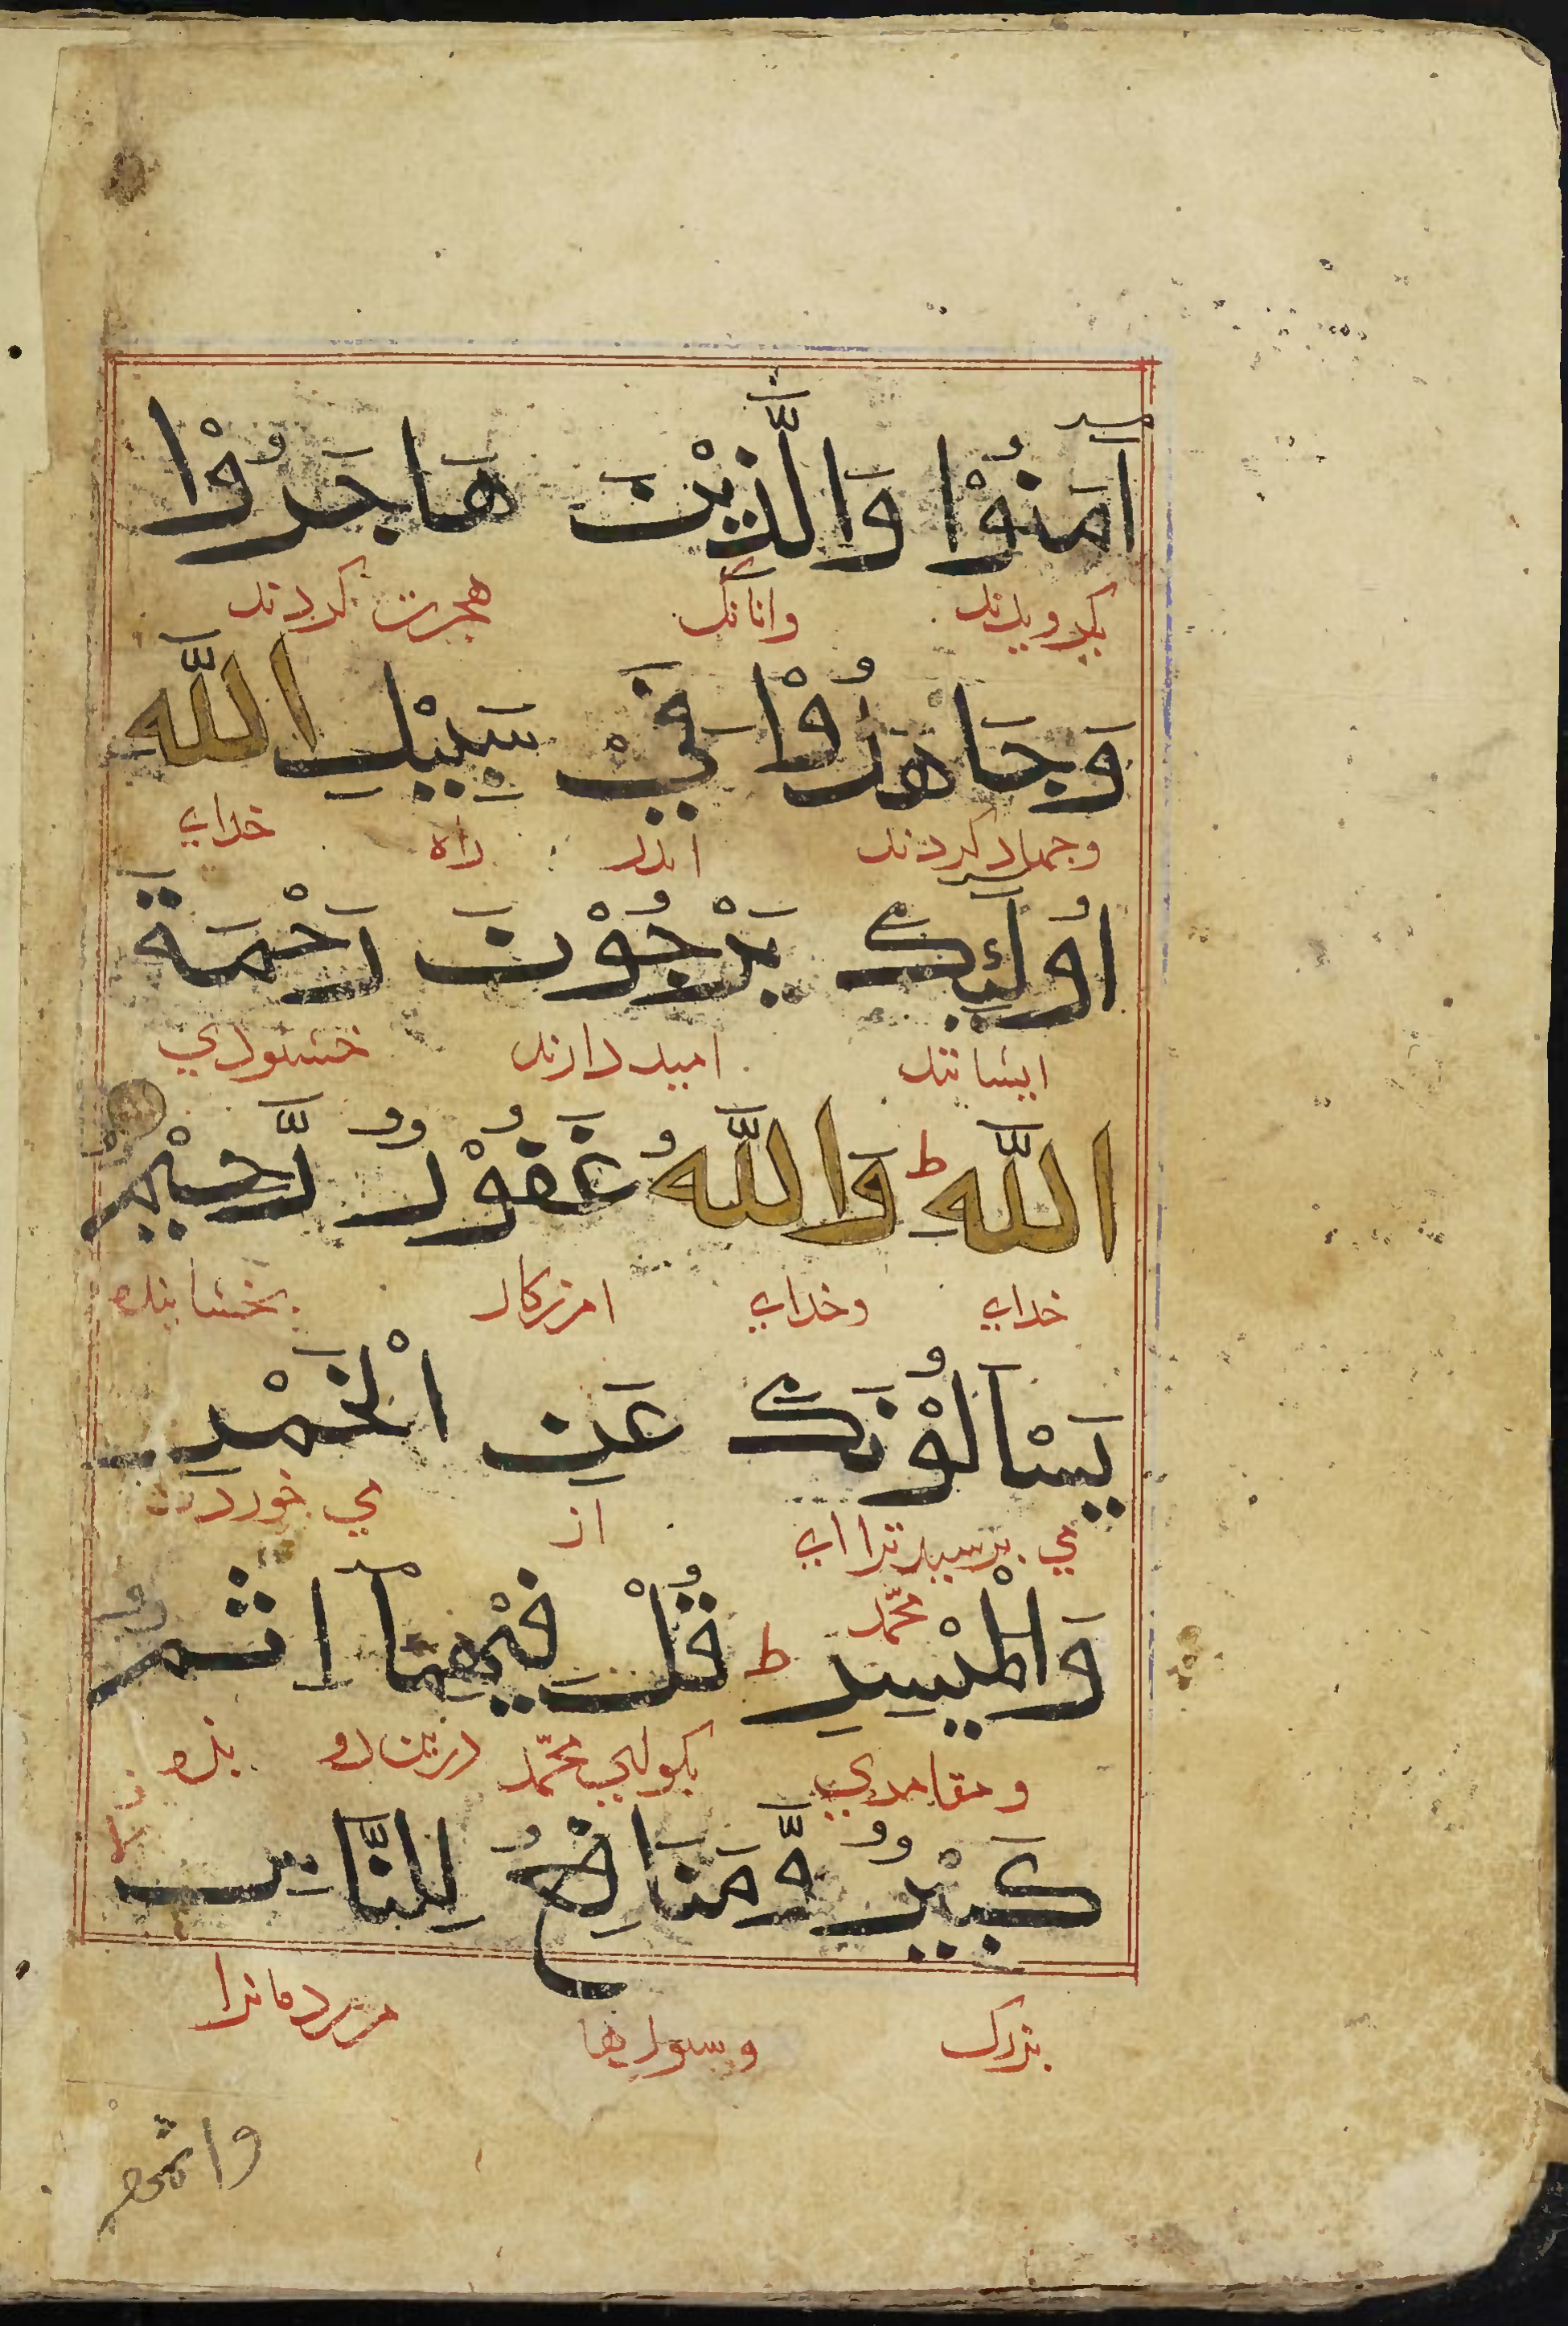 اٰمَنُوْا وَالَّذِيْنَ هَاجَرُوْا
بکرویدند وانانک هجرت کردند
وَجَاهَدُوْا فِيْ سَبِيْلِ اللَّهِ
وجهاد کردند اندر راه خدای
اُولٰئِكَ يَرْجُوْنَ رَحْمَةَ
ایشانند امید دارند خشنودي
اللَّهِ ط وَاللَّهُ غَفُوْرٌ رَّحِيْمٌ
خدای وخدای امرزکار بخشاینده
يَسْاَلُوْنَكَ عَنِ الْخَمْرِ
مي پرسند ترا ای محمّد از مي خوردن
وَالْمَيْسِرِ ط قُلْ فِيْهِمَا اِثْمٌ
ومقامري بکوي محمّد درین دو بزه
كَبِيْرٌ وَّمَنَافِعُ لِلنَّاسِ
بزرک وسودها مردمانرا
واثمهما